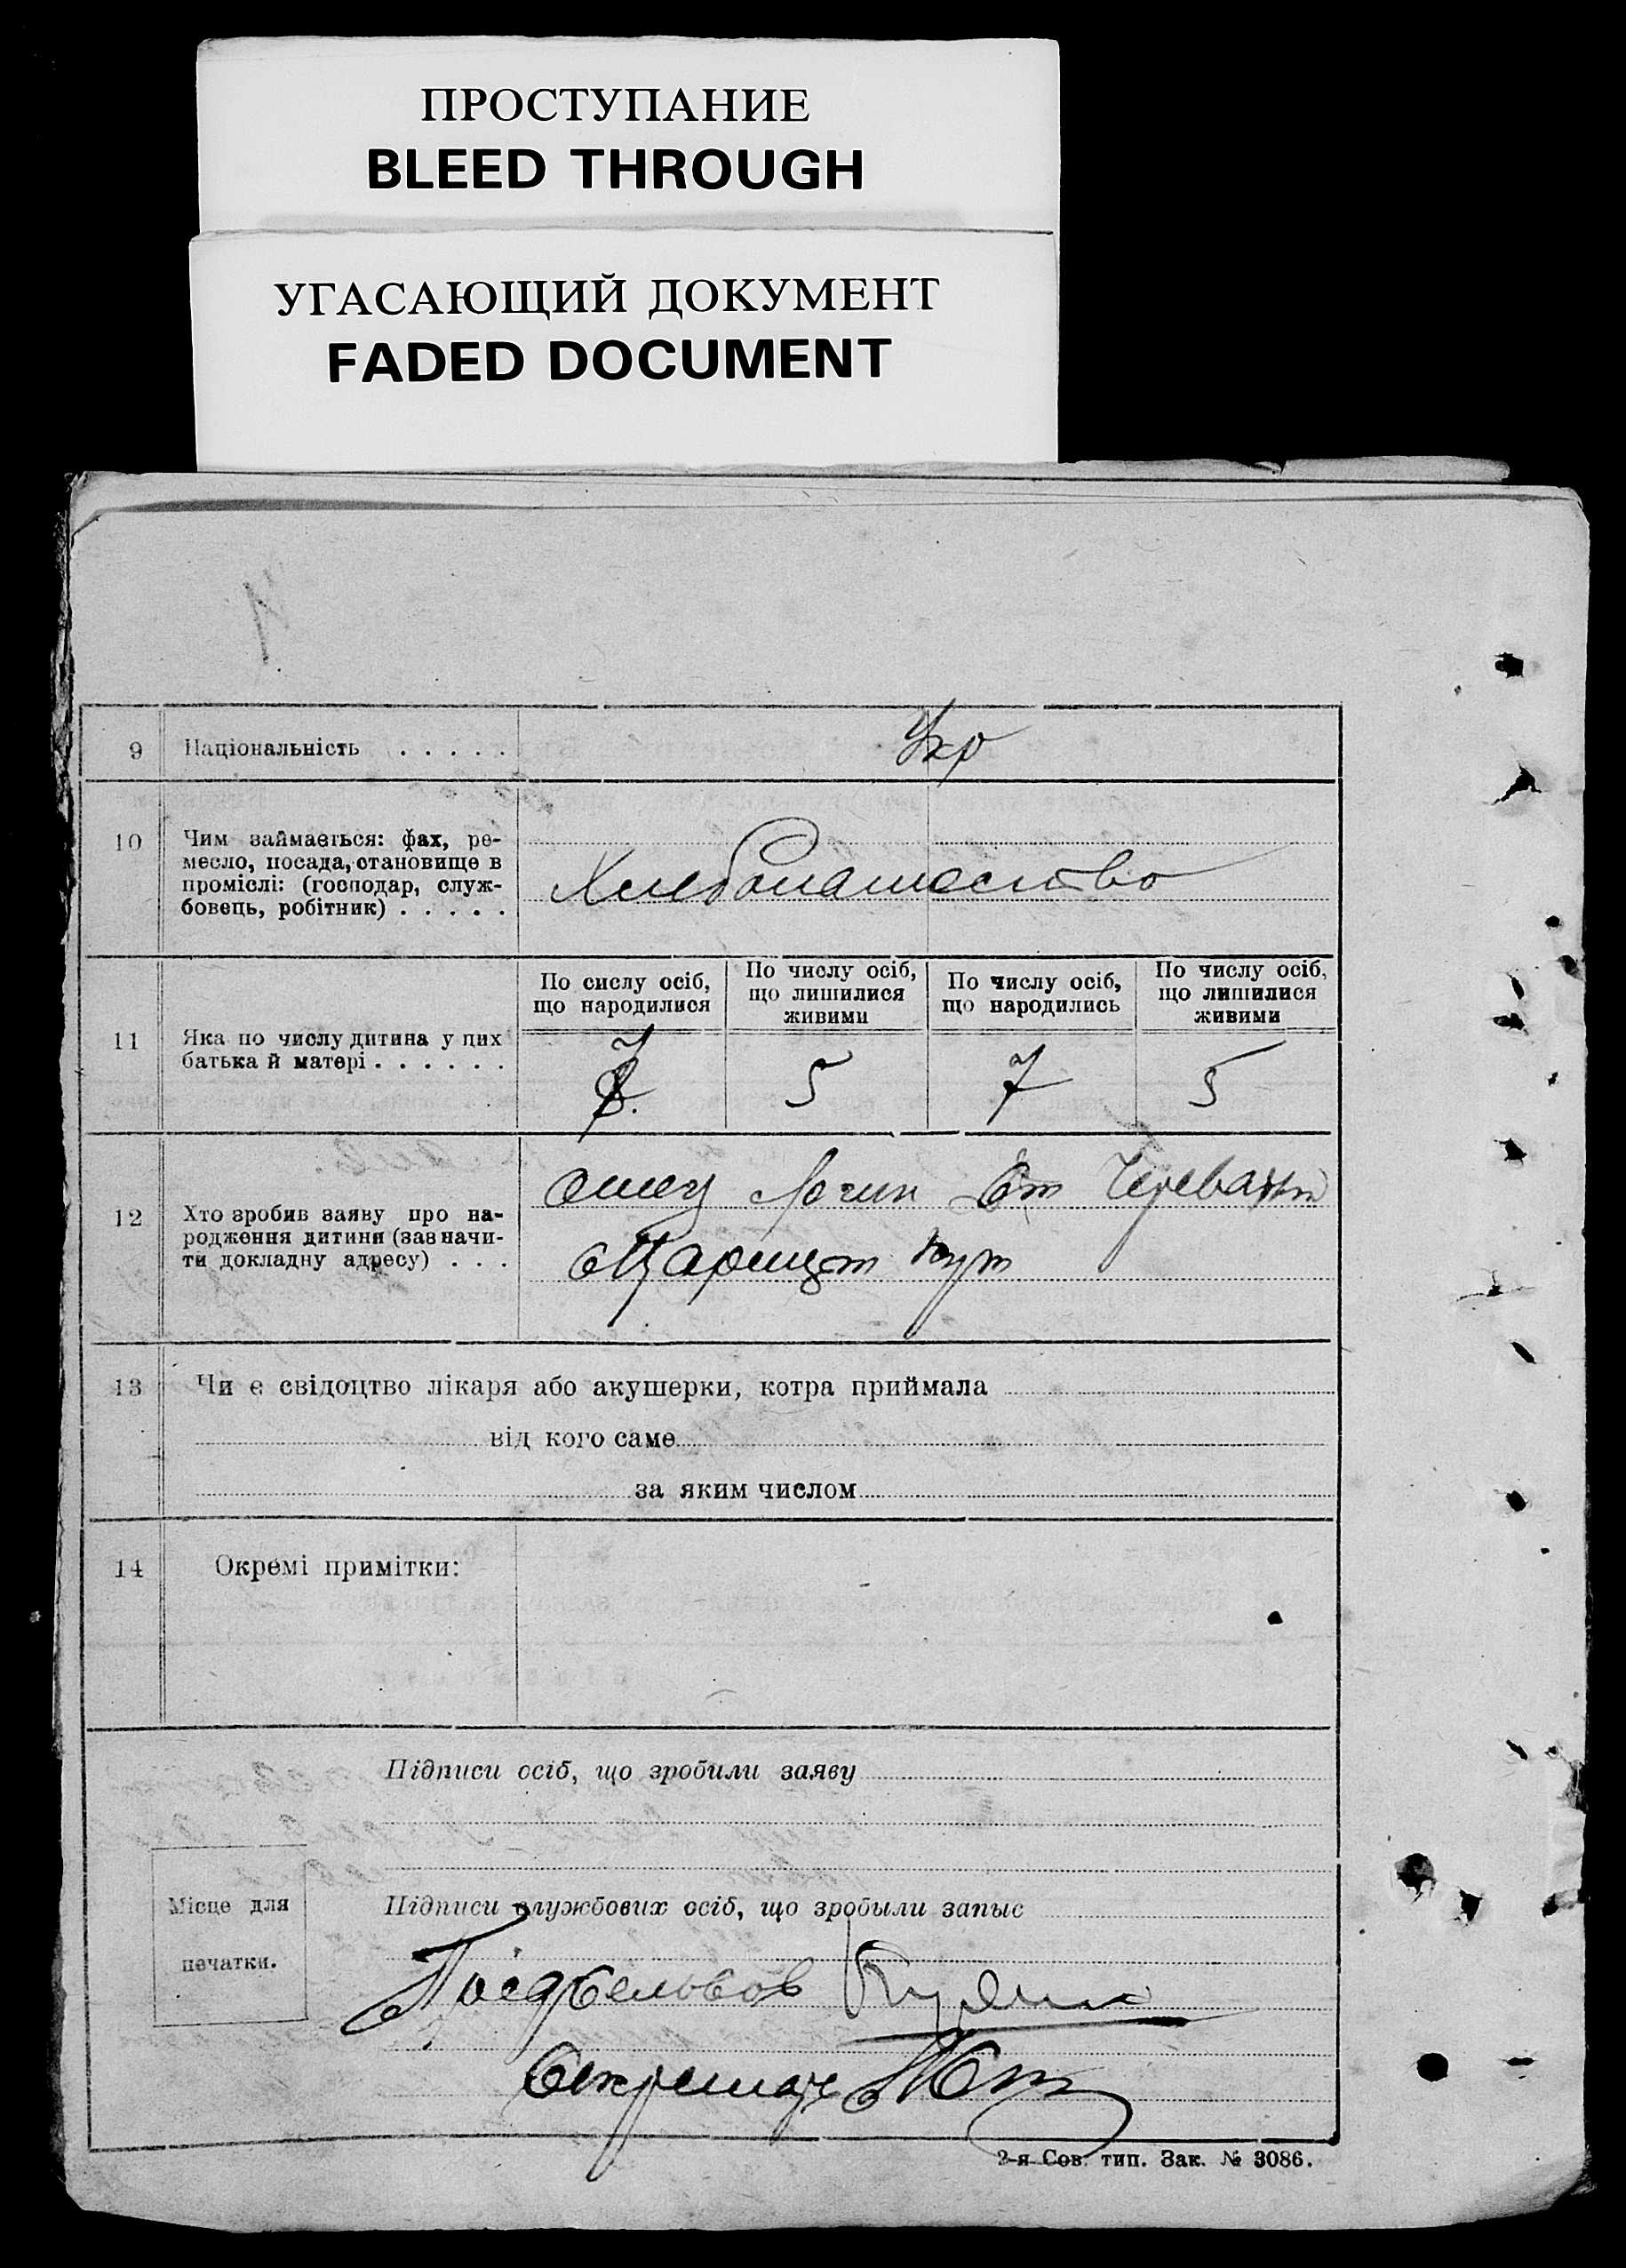 ПРОСТУПАНИЕ
BLEED THROUGH
УГАСАЮЩИЙ ДОКУМЕНТ
FADED DOCUMENT
9 Національність . . . . . Укр
10 Чим займається: фах, ре-
месло, посада, становище в
проміслі: (господар, служ-
бовець, робітник) . . . . . Хлебопашество
По сислу осіб, що народилися
По числу осіб, що лишилися живими
По числу осіб, що народились
По числу осіб, що лишилися живими
11 Яка по числу дитина у цих
батька й матері . . . . . .
7 5 7 5
12 Хто зробив заяву про на-
родження дитини (зазначи-
ти докладну адресу) . . .
Отец Логин
Кут
13 Чи є свідоцтво лікаря або акушерки, котра приймала
від кого саме
за яким числом
14 Окремі примітки:
Підписи осіб, що зробили заяву
Місце для
печатки.
Підписи службових осіб, що зробыли запыс
Секретарь
2-я Сов. тип. Зак. № 3086.